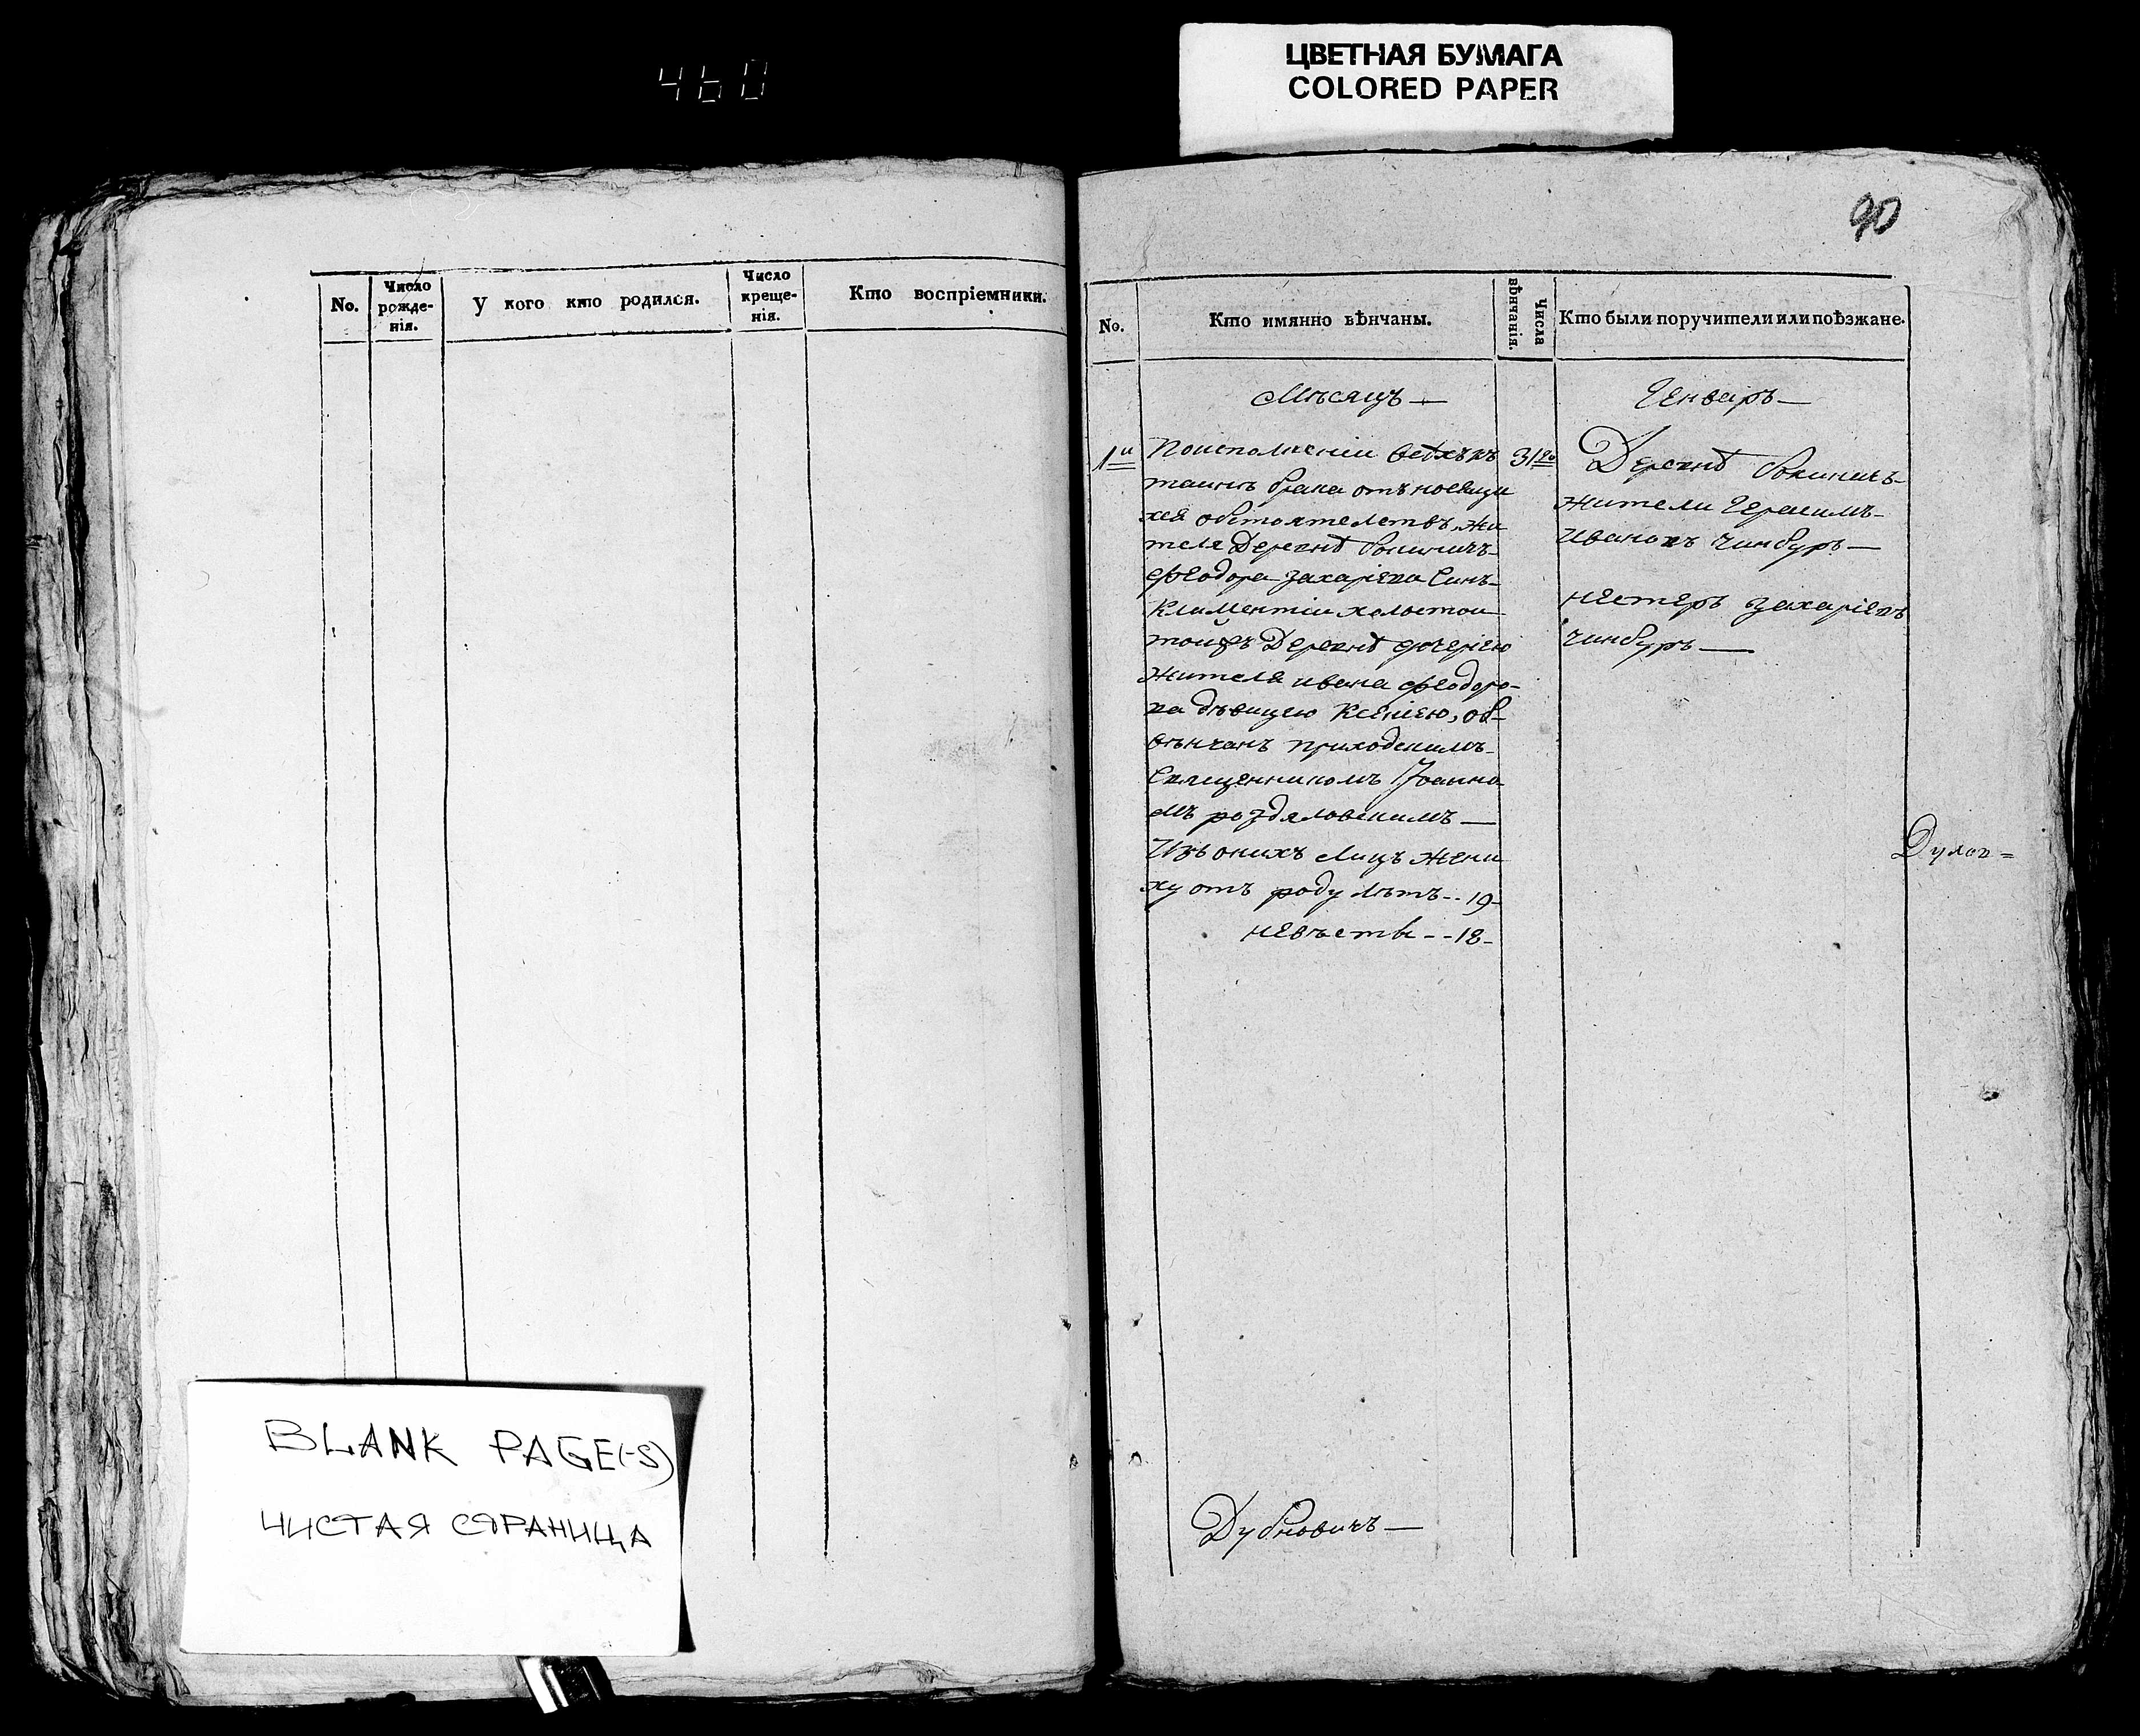 460
ЦВЕТНАЯ БУМАГА
COLORED PAPER
90
No.
Число рожде-нія.
У кого кто родился.
Число креще-нія.
Кто воспріемники.
No.
Кто имянно вѣнчаны.
Числа вѣнчанія.
Кто были поручители или поѣзжане.
Мѣсяцъ —
Генварь —
1й
Поисполненіи всѣхъ къ
таинѣ брака относящи
хся обстоятелствъ, жи
теля Деревнѣ
Феодора Захаріева Синъ
Климентіи холостои
тойжъ Деревнѣ дочерію
жителя ивана Феодоро-
ва дѣвицею Ксеніею, об-
вѣнчанъ приходскимъ
Священникомъ Іоанно
мъ роздяловскимъ —
Изъ онихъ лицъ жени
ху отъ роду лѣтъ - - 19 -
невѣстѣ - - 18 -
31го
Деревнѣ
жители Герасимъ
Ивановъ Чинбуръ —
нестеръ Захаріевъ
Чинбуръ —
Дубновичъ —
BLANK PAGE(-S)
ЧИСТАЯ СТРАНИЦА